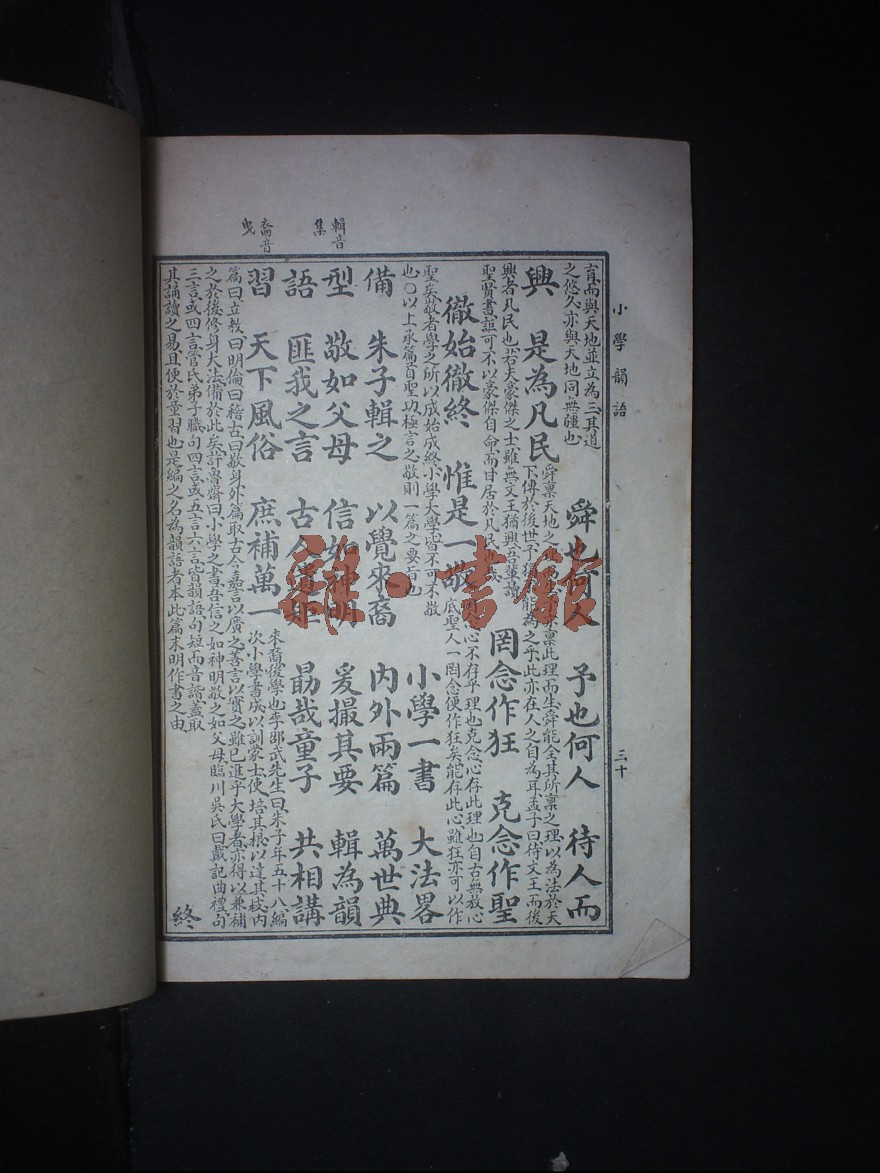 小學韻語
三十
輯音
集
裔音
曳
育而與天地並立為三其道
之悠久亦與天地同無疆也
舜也何人 予也何人 待人而
興 是為凡民
舜稟天地之理而生舜能全其所稟之理以為法於天
下傳於後世予能為之乎此亦在人之自為耳孟子曰待文王而後
興者凡民也若夫豪傑之士雖無文王猶興吾輩讀
聖賢書詎可不以豪傑自命而甘居於凡民
罔念作狂 克念作聖
徹始徹終 惟是一敬
罔念心不存乎理也克念心存此理也自古無放心
底聖人一罔念便作狂矣能存此心雖狂亦可以作
聖矣敬者學之所以成始成終小學大學皆不可不敬
也○以上承篇首聖功極言之敬則一篇之要旨也
小學一書 大法畧
備 朱子輯之 以覺來裔 內外兩篇 萬世典
型 敬如父母 信如神明 爰撮其要 輯為韻
語 匪我之言 古人遺 勗哉童子 共相講
習 天下風俗 庶補萬一
來裔後學也李邵武先生曰朱子年五十八編
次小學書成以訓蒙士使培其根以達其枝內
篇曰立教曰明倫曰稽古曰敬身外篇取古人嘉言以廣之善言以實之雖已進乎大學者亦得以兼補
之於後修身大法備於此矣許魯齋曰小學之書吾信之如神明敬之如父母臨川吳氏曰戴記曲禮句
三言或四言管氏弟子職句四言或五言六言皆韻語句短而音諧蓋取
其誦讀之易且便於童習也是編之名為韻語者本此篇末明作書之由
終
雜·書館